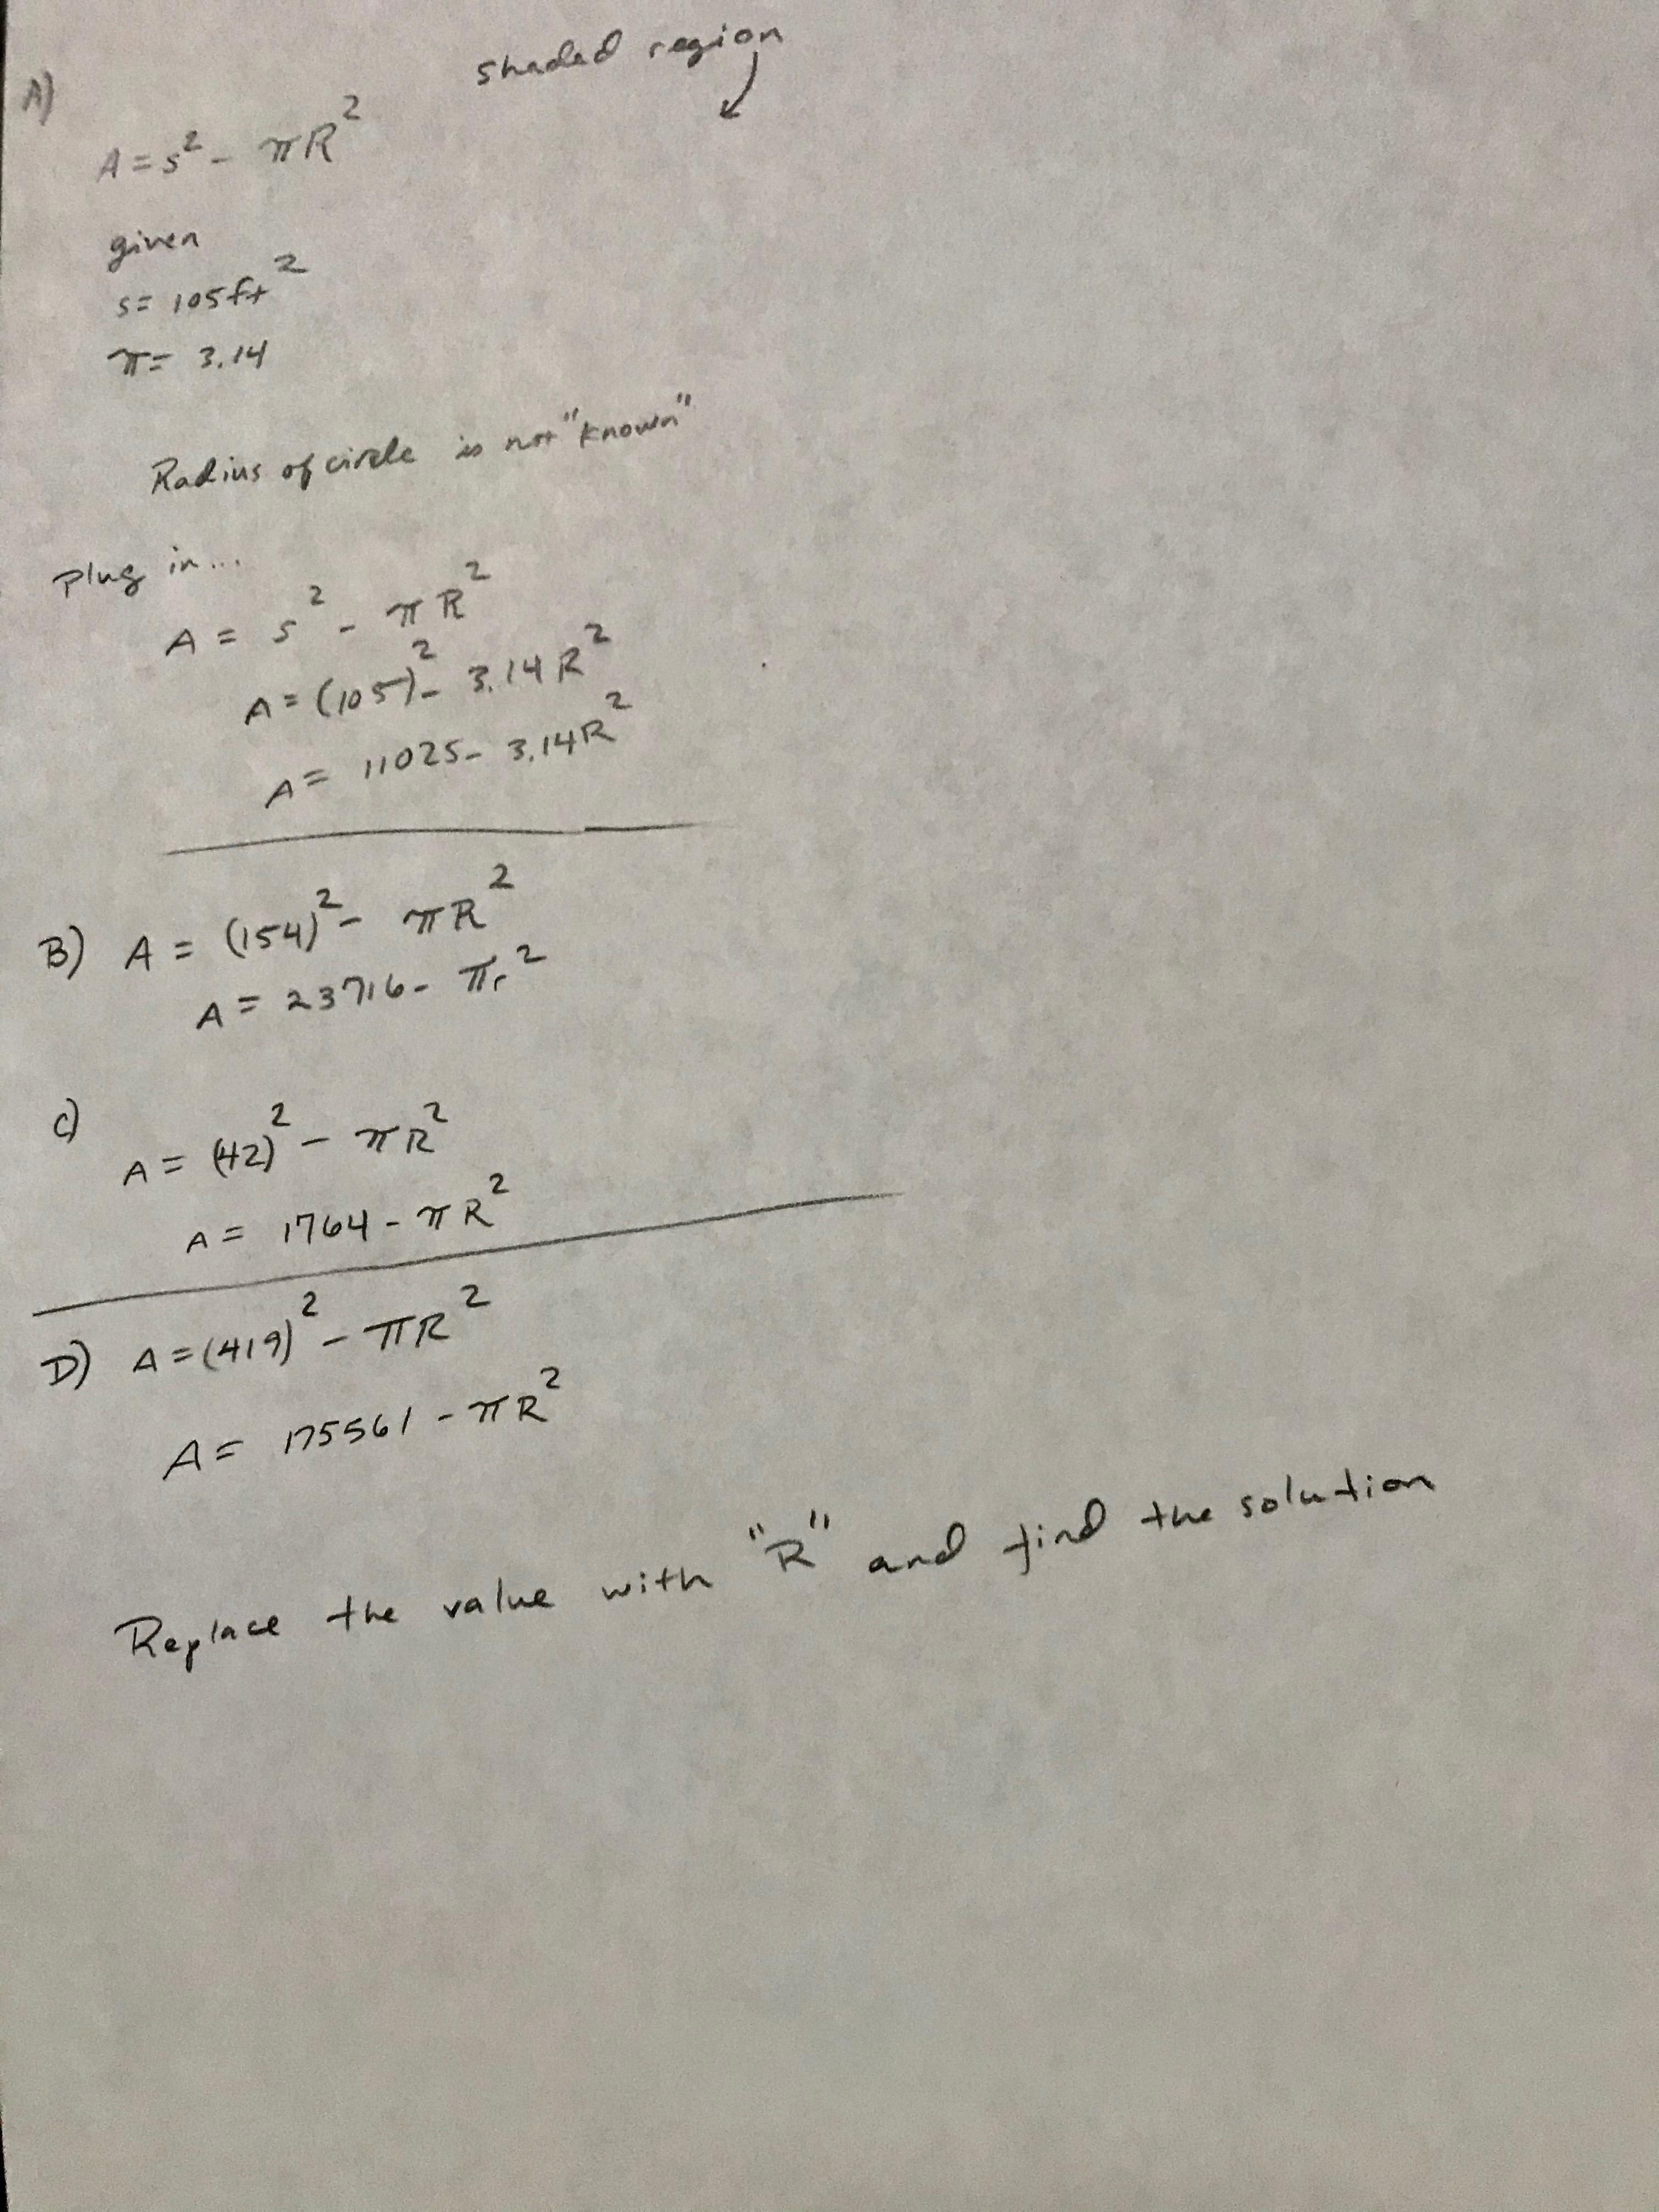 shaded region
A)
A = s² - πR²
given
s = 105ft²
π = 3.14
Radius of circle is not "known"
Plug in...
A = s² - πR²
A = (105)² - 3.14R²
A = 11025 - 3.14R²
B) A = (154)² - πR²
A = 23716 - πr²
C)
A = (42)² - πR²
A = 1764 - πR²
D) A = (419)² - πR²
A = 175561 - πR²
Replace the value with "R" and find the solution